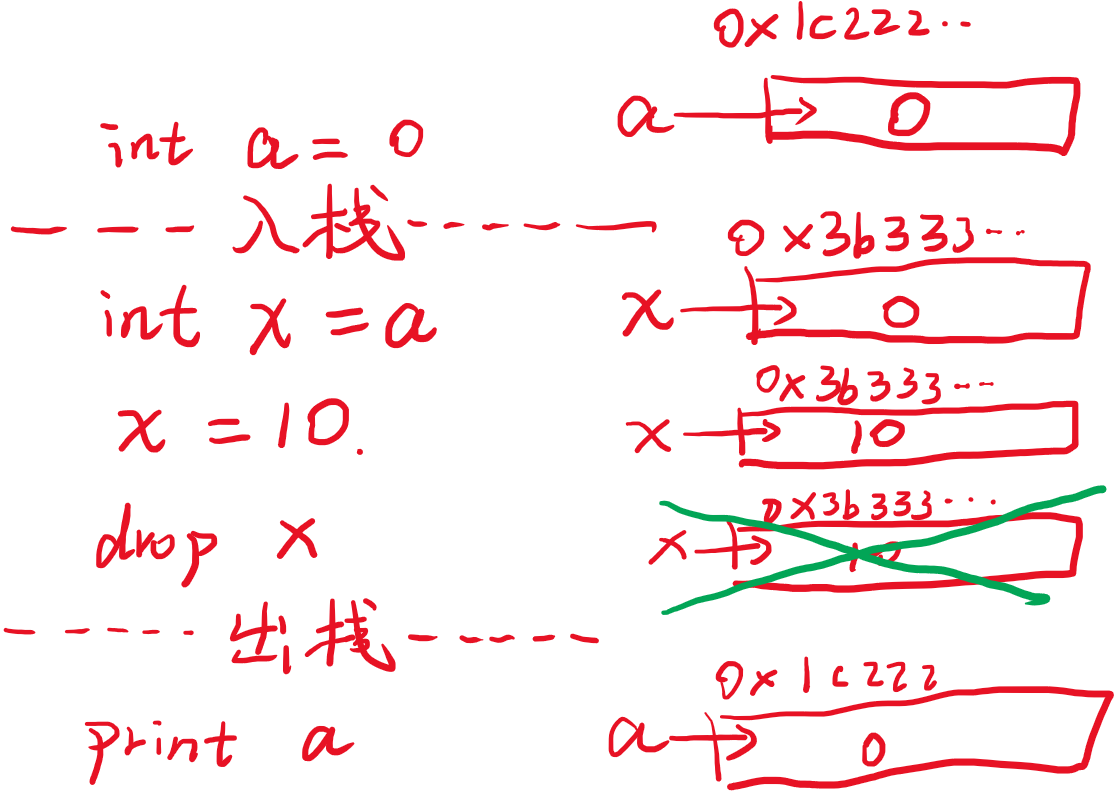 0x1c222..
int a = 0
a → 0
---入栈------
0x3b333...
int x = a
x → 0
0x3b333...
x = 10.
x → 10
0x3b333...
drop x
x → 10
-----出栈-----
0x1c222
print a
a → 0